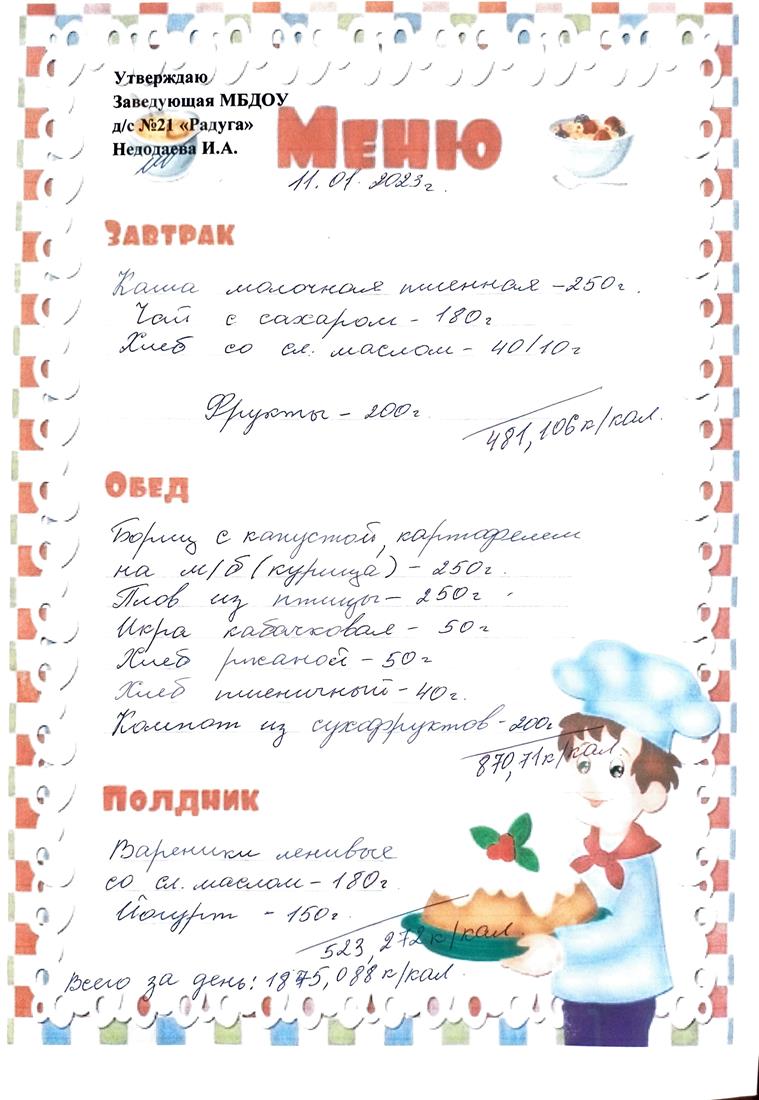 Утверждаю
Заведующая МБДОУ
д/с №21 «Радуга»
Недодаева И.А.
Меню
11.01.2023г.
Завтрак
Каша молочная пшенная – 250г.
Чай с сахаром – 180г
Хлеб со сл. маслом – 40/10г
Фрукты – 200г.
481,106к/кал.
Обед
Борщ с капустой, картофелем
на м/б (курица) – 250г.
Плов из птицы – 250г
Икра кабачковая – 50г
Хлеб ржаной – 50г
Хлеб пшеничный – 40г.
Компот из сухофруктов – 200г
870,71к/кал
Полдник
Вареники ленивые
со сл. маслом – 180г
Йогурт – 150г.
523,272к/кал.
Всего за день: 1875,088к/кал.